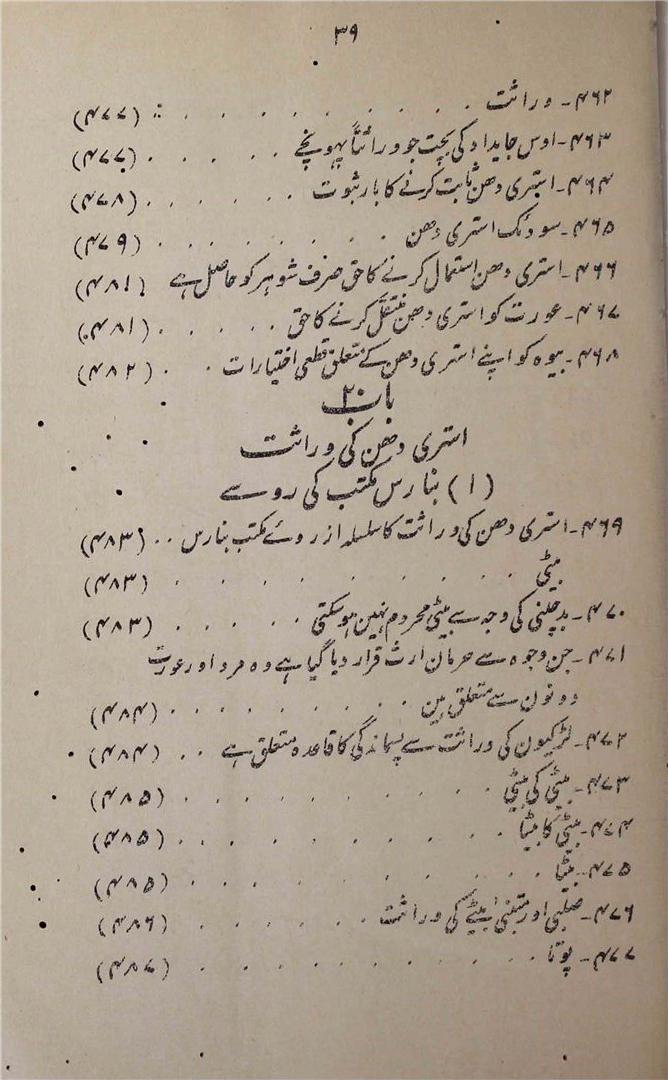 ۳۹
۴۶۲۔ وراثت . . . . . . . . . . (۴۷۷)
۴۶۳۔ اوس جایداد کی بچت جو وراثتاً پہونچے . . . . . (۴۷۷)
۴۶۴۔ استری دھن ثابت کرنے کا بار ثبوت . . . . . (۴۷۸)
۴۶۵۔ سودئک استری دھن . . . . . . . . (۴۷۹)
۴۶۶۔ استری دھن استعمال کرنے کا حق صرف شوہر کو حاصل ہے (۴۸۱)
۴۶۷۔ عورت کو استری دھن منتقل کرنے کا حق . . . . . (۴۸۱)
۴۶۸۔ بیوہ کو اپنے استری دھن کے متعلق قطعی اختیارات . . (۴۸۲)
باب ۲۰
استری دھن کی وراثت
(۱) بنارس مکتب کی روسے
۴۶۹۔ استری دھن کی وراثت کا سلسلہ از روئے مکتب بنارس . . (۴۸۳)
بیٹی . . . . . . . . . . (۴۸۳)
۴۷۰۔ بد چلنی کی وجہ سے بیٹی محروم نہین ہوسکتی . . . . . (۴۸۳)
۴۷۱۔ جن وجوہ سے حرمان ارث قرار دیا گیا ہے وہ مرد اور عورت
دونون سے متعلق ہین . . . . . . . . (۴۸۴)
۴۷۲۔ لڑکیون کی وراثت سے پسماندگی کا قاعدہ متعلق ہے . . (۴۸۴)
۴۷۳۔ بیٹی کی بیٹی . . . . . . . . . (۴۸۵)
۴۷۴۔ بیٹی کا بیٹا . . . . . . . . . (۴۸۵)
۴۷۵۔ بیٹا . . . . . . . . . . (۴۸۵)
۴۷۶۔ صلبی اور متبنیٰ بیٹے کی وراثت . . . . . . (۴۸۶)
۴۷۷۔ پوتا . . . . . . . . . . (۴۸۷)